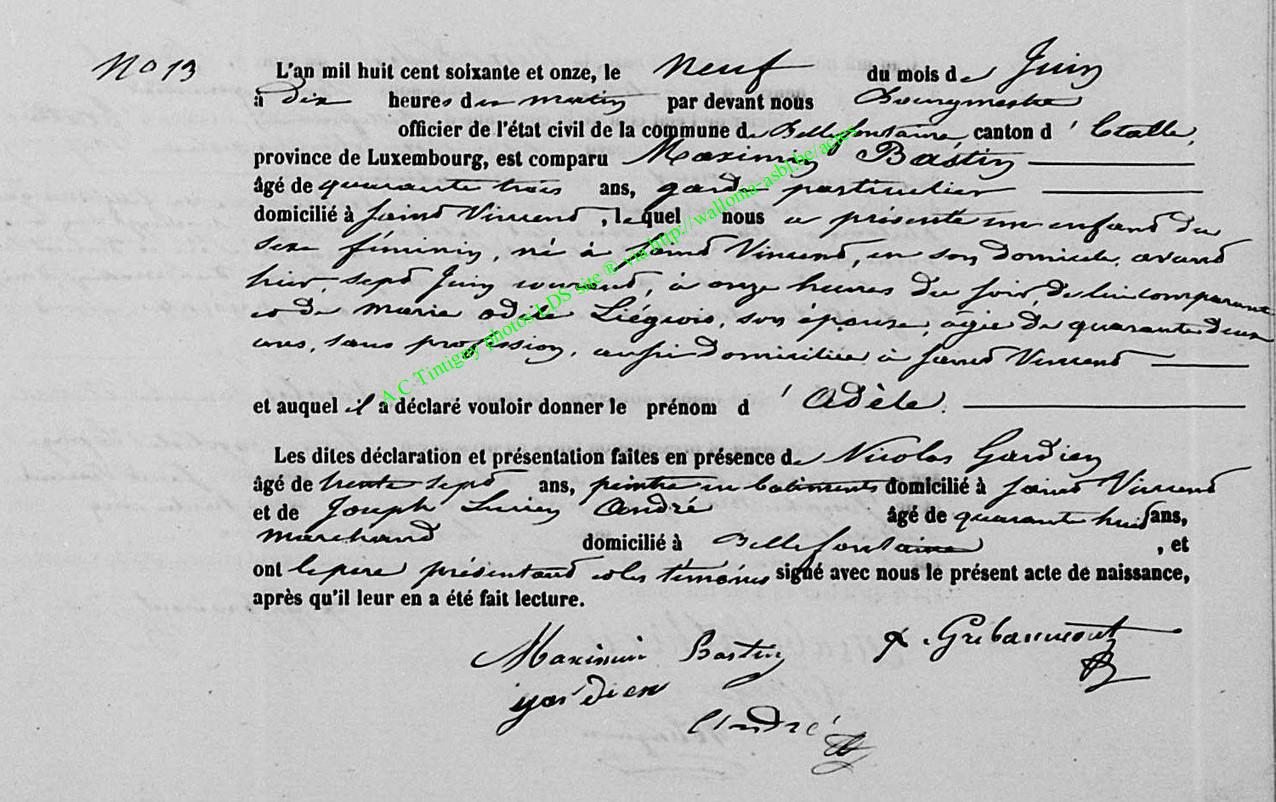 No 13
L'an mil huit cent soixante et onze, le neuf du mois de Juin
à dix heures du matin par devant nous Bourgmestre
officier de l'état civil de la commune de Bellefontaine canton d'Etalle,
province de Luxembourg, est comparu Maximin Bastin
âgé de quarante trois ans, garde particulier
domicilié à Saint Vincent, lequel nous a présenté un enfant du
sexe féminin, né à Saint Vincent, en son domicile, avant
hier, sept Juin courant, à onze heures du soir, de lui comparant
et de Marie Odile Liégeois, son épouse, âgée de quarante deux
ans, sans profession, aussi domiciliée à Saint Vincent
et auquel il a déclaré vouloir donner le prénom d'Adèle.
Les dites déclaration et présentation faites en présence de Nicolas Gardien
âgé de trente sept ans, peintre en batiments domicilié à Saint Vincent
et de Joseph Lucien André âgé de quarante huit ans,
marchand domicilié à Bellefontaine, et
ont le père présentant et les témoins signé avec nous le présent acte de naissance,
après qu'il leur en a été fait lecture.
Maximin Bastin Gribaumont
gardien
André
A C Tintigny photos LDS site ® via http://walloma-asbl.be/actes